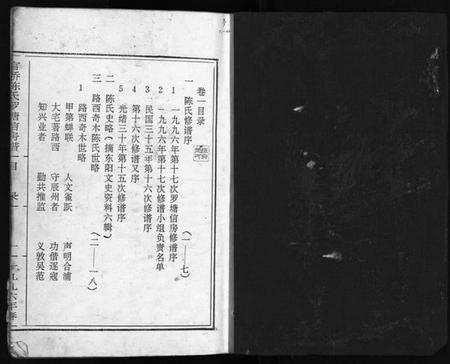 卷一目录
一 陈氏修谱序 (一——七)
1 一九九六年第十七次罗塘信房修谱序
2 一九九六年第十七次修谱小组负责名单
3 民国三十五年第十六次修谱序
4 第十六次修谱又序
5 光绪三十年第十五次修谱序
二 陈氏史略(摘东阳文史资料六辑)
三 路西奇木陈氏世略 (二——一八)
1 路西奇木陈氏世略
甲第蝉联 人文雀跃 声明合浦
大宅著路西 守辰州者 功借逐寇
知兴业者 勤共推监 义敦吴范
官桥陈氏罗塘信房谱
目录
一九九六年春